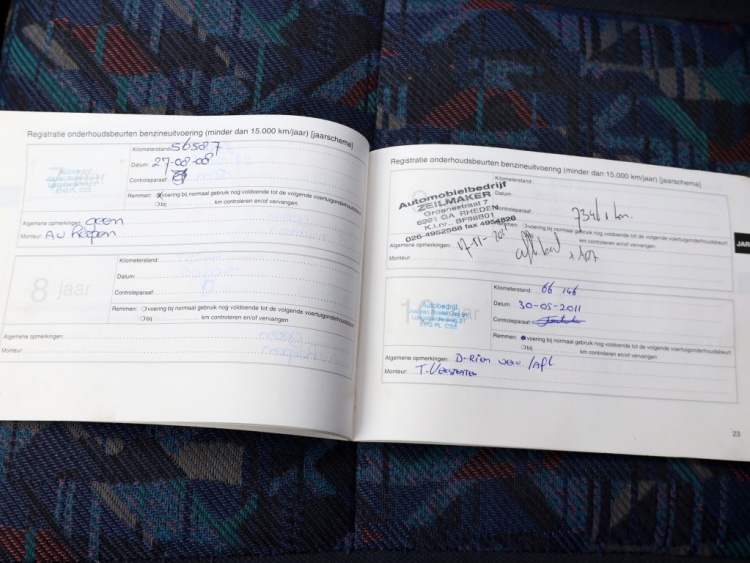 Registratie onderhoudsbeurten benzineuitvoering (minder dan 15.000 km/jaar) [jaarschema]
Kilometerstand: 56587
Datum: 27-08-08
Controleparaaf:
Remmen: voering bij normaal gebruik nog voldoende tot de volgende voertuigonderhoudsbeurt
bij km controleren en/of vervangen
Algemene opmerkingen: geen
Monteur:
8 jaar
Kilometerstand:
Datum:
Controleparaaf:
Remmen: voering bij normaal gebruik nog voldoende tot de volgende voertuigonderhoudsbeurt
bij km controleren en/of vervangen
Algemene opmerkingen:
Monteur:
Registratie onderhoudsbeurten benzineuitvoering (minder dan 15.000 km/jaar) [jaarschema]
Automobielbedrijf
ZEILMAKER
Groenestraat 7
6991 GA RHEDEN
K.I.nr. BF98B01
026-4952588 fax 4954826
Datum:
Controleparaaf:
voering bij normaal gebruik nog voldoende tot de volgende voertuigonderhoudsbeurt
km controleren en/of vervangen
Algemene opmerkingen:
Monteur:
JAR
10
Autobedrijf
Kilometerstand: 66 146
Datum: 30-05-2011
Controleparaaf:
Remmen: voering bij normaal gebruik nog voldoende tot de volgende voertuigonderhoudsbeurt
bij km controleren en/of vervangen
Algemene opmerkingen: D-Riem verv. /Apk
Monteur:
23